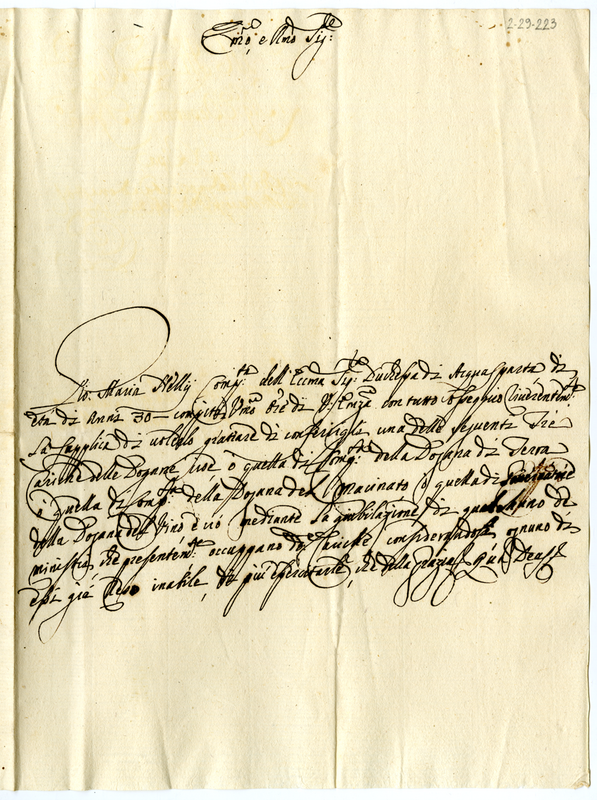 2-29-223
Emo, e Rmo Sig:re
Gio. Maria Nelly Comp.ta dell'Eccma Sig:ra Duchessa di Acqua Sparta di
età di Anni 30 compiti Umo Ore di V. Emza con tutto ossequio riverentem.te
La Supplica di volersi graziare di conferirgli una delle seguenti Trè
Cariche delle Dogane cioè ò quella di Comp.ta della Dogana di Terra
ò quella di Comp.ta della Dogana del Macinato ò quella di
della Dogana del Vino e ciò mediante La giubilazione di qualchuno de
ministri che presentem.te occuppano d.e Cariche considerandosi ognuno di
essi già Reso inabile di più esercitarle, che della grazia